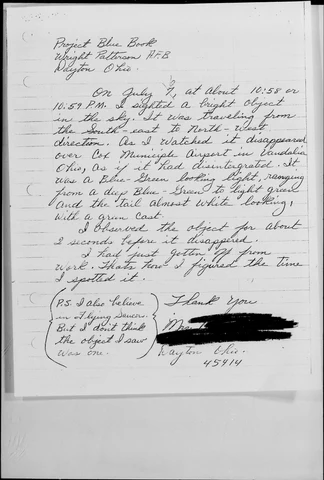 Project Blue Book
Wright Patterson A.F.B
Dayton Ohio.
On July 9, at about 10:58 or
10:59 P.M. I sighted a bright object
in the sky. It was traveling from
the South-east to North-West
direction. As I watched it disappeared
over Cox Municiple Airport in Vandalia
Ohio, as if it had disintergrated. It
was a Blue-Green looking light, raanging
from a deep Blue-Green to light green
and the tail almost white looking,
with a green cast.
I observed the object for about
2 seconds before it disappered.
I had just gotten off from
work. Thats how I figured the time
I spotted it.
Thank You
Dayton Ohio.
45414
P.S. I also believe
in Flying Saucers.
But I don't think
the object I saw
was one.